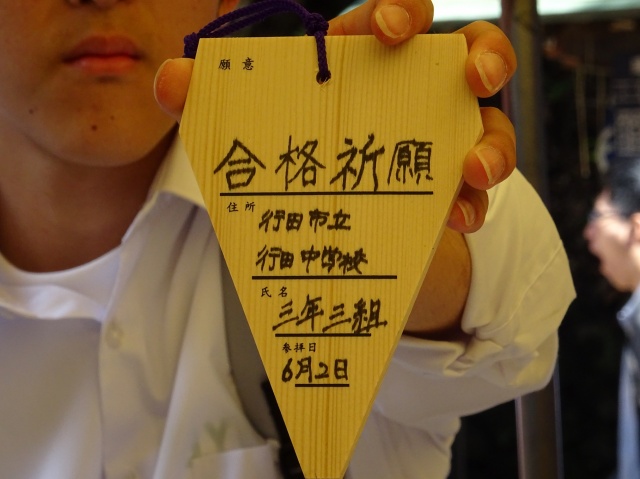 願意
合格祈願
住所
行田市立
行田中学校
氏名
三年三組
参拝日
6月2日